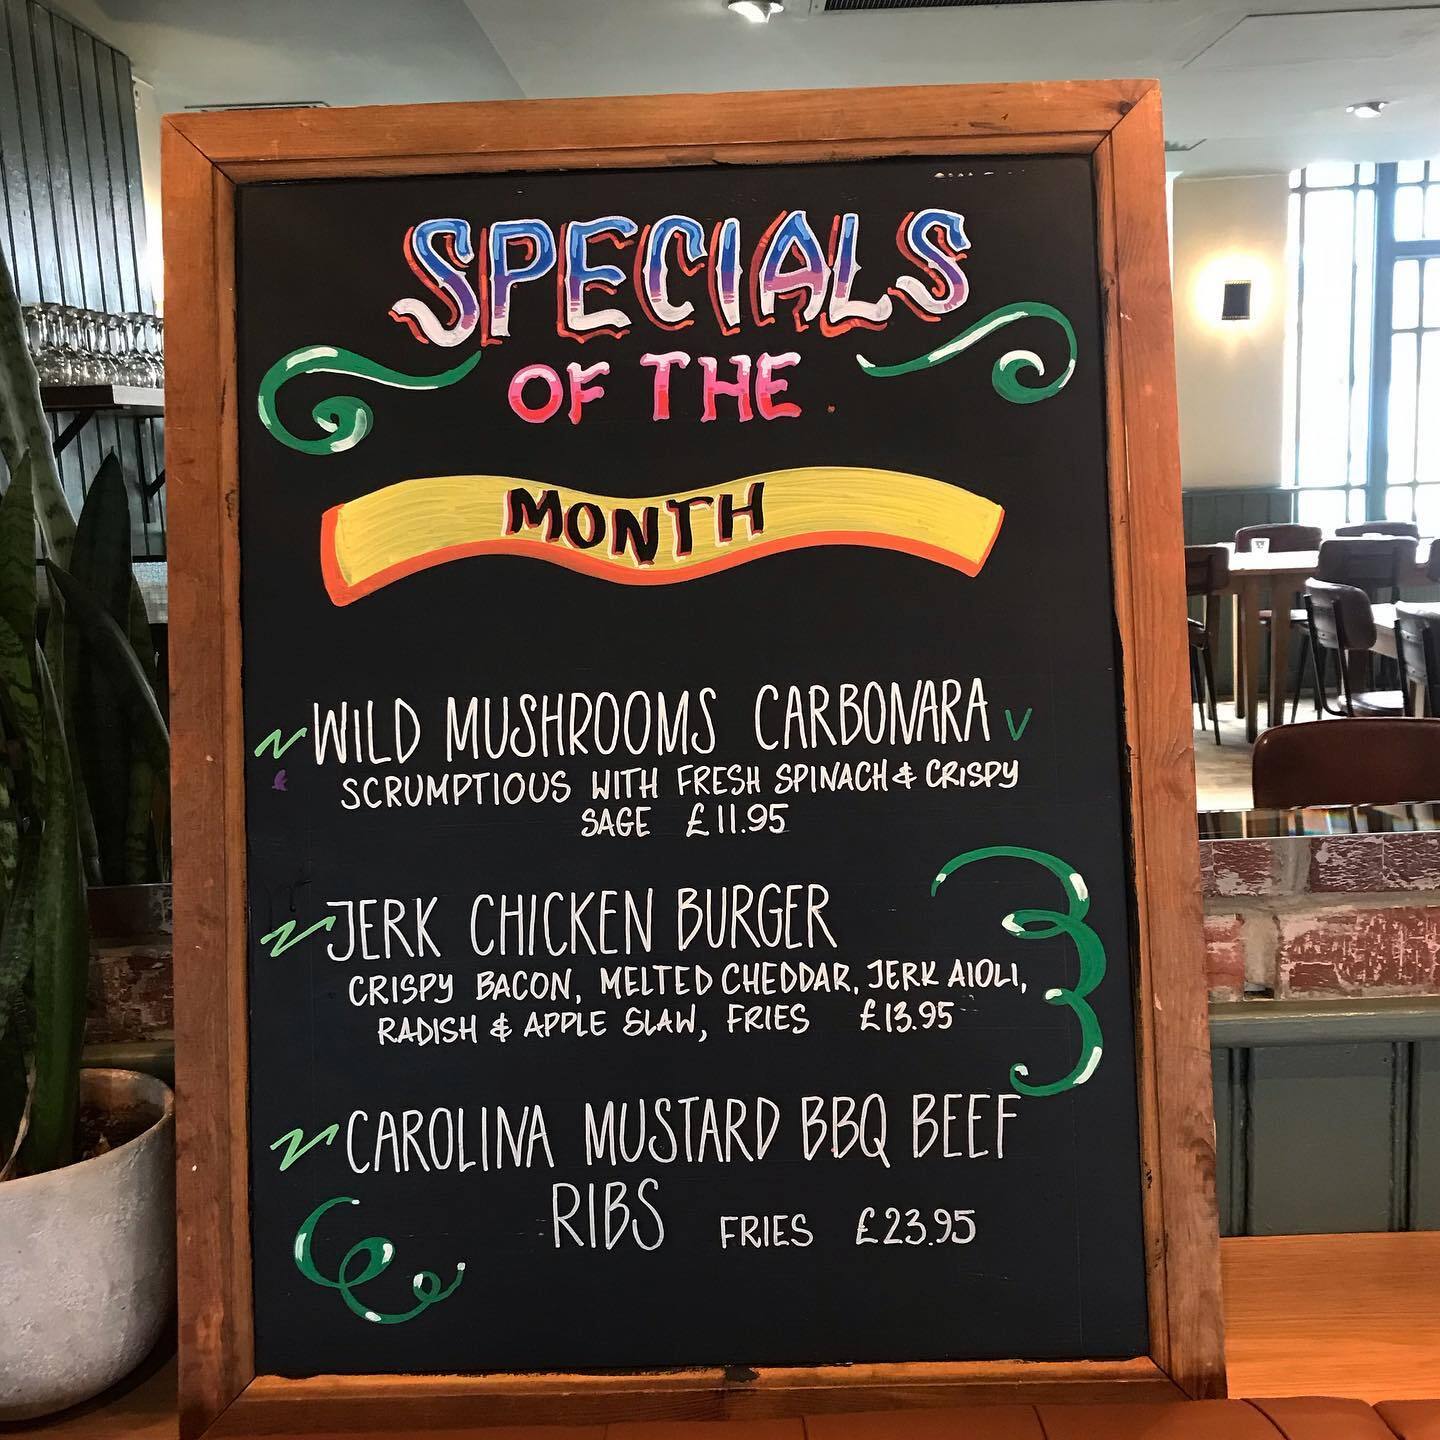 SPECIALS
OF THE
MONTH
WILD MUSHROOMS CARBONARA V
SCRUMPTIOUS WITH FRESH SPINACH & CRISPY
SAGE £11.95
JERK CHICKEN BURGER
CRISPY BACON, MELTED CHEDDAR, JERK AIOLI,
RADISH & APPLE SLAW, FRIES £13.95
CAROLINA MUSTARD BBQ BEEF
RIBS FRIES £23.95